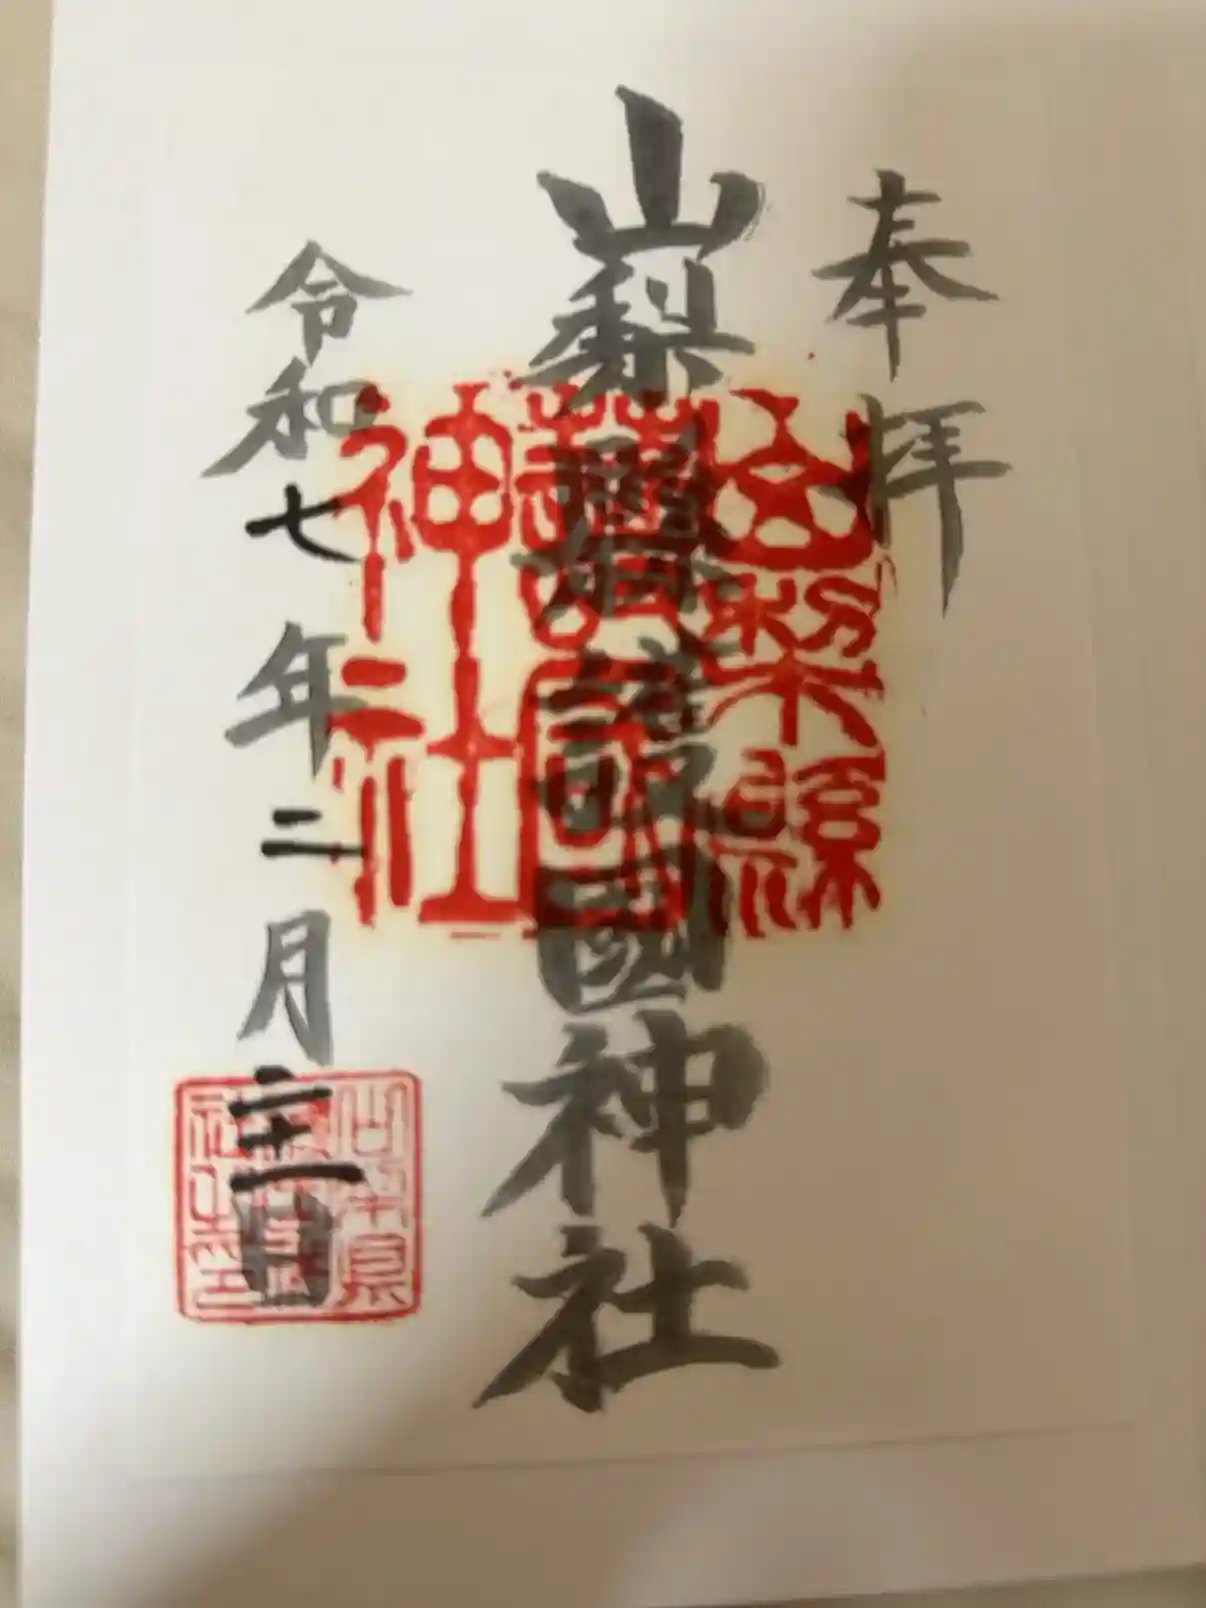 奉拝
山梨縣護國神社
山梨縣
護國
神社
令和七年二月二十一日
山梨縣
社之印